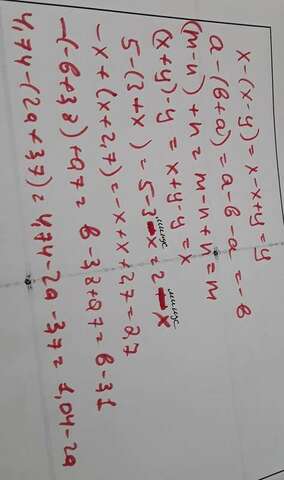 x-(x-y)=x-x+y=y
a-(в+a)=a-в-a=-в
(m-n)+n=m-n+n=m
(x+y)-y=x+y-y=x
минус минус
5-(3+x)=5-3-x=2-x
-x+(x+2,7)=-x+x+2,7=2,7
-(-в+3,8)+0,7=в-3,8+0,7=в-3,1
4,74-(2a+3,7)=4,74-2a-3,7=1,04-2a